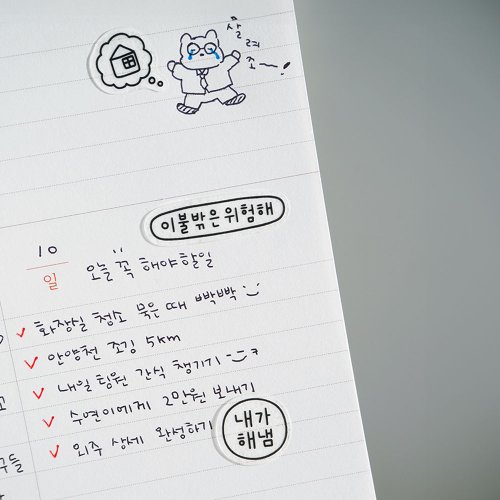 살
려
조~!
이불밖은위험해
10
일
오늘 꼭 해야할일
화장실 청소 묵은 때 빡빡
안양천 조깅 5km
내일 팀원 간식 챙기기
수연이에게 2만원 보내기
외주 상세 완성하기
내가
해냄
고
구들